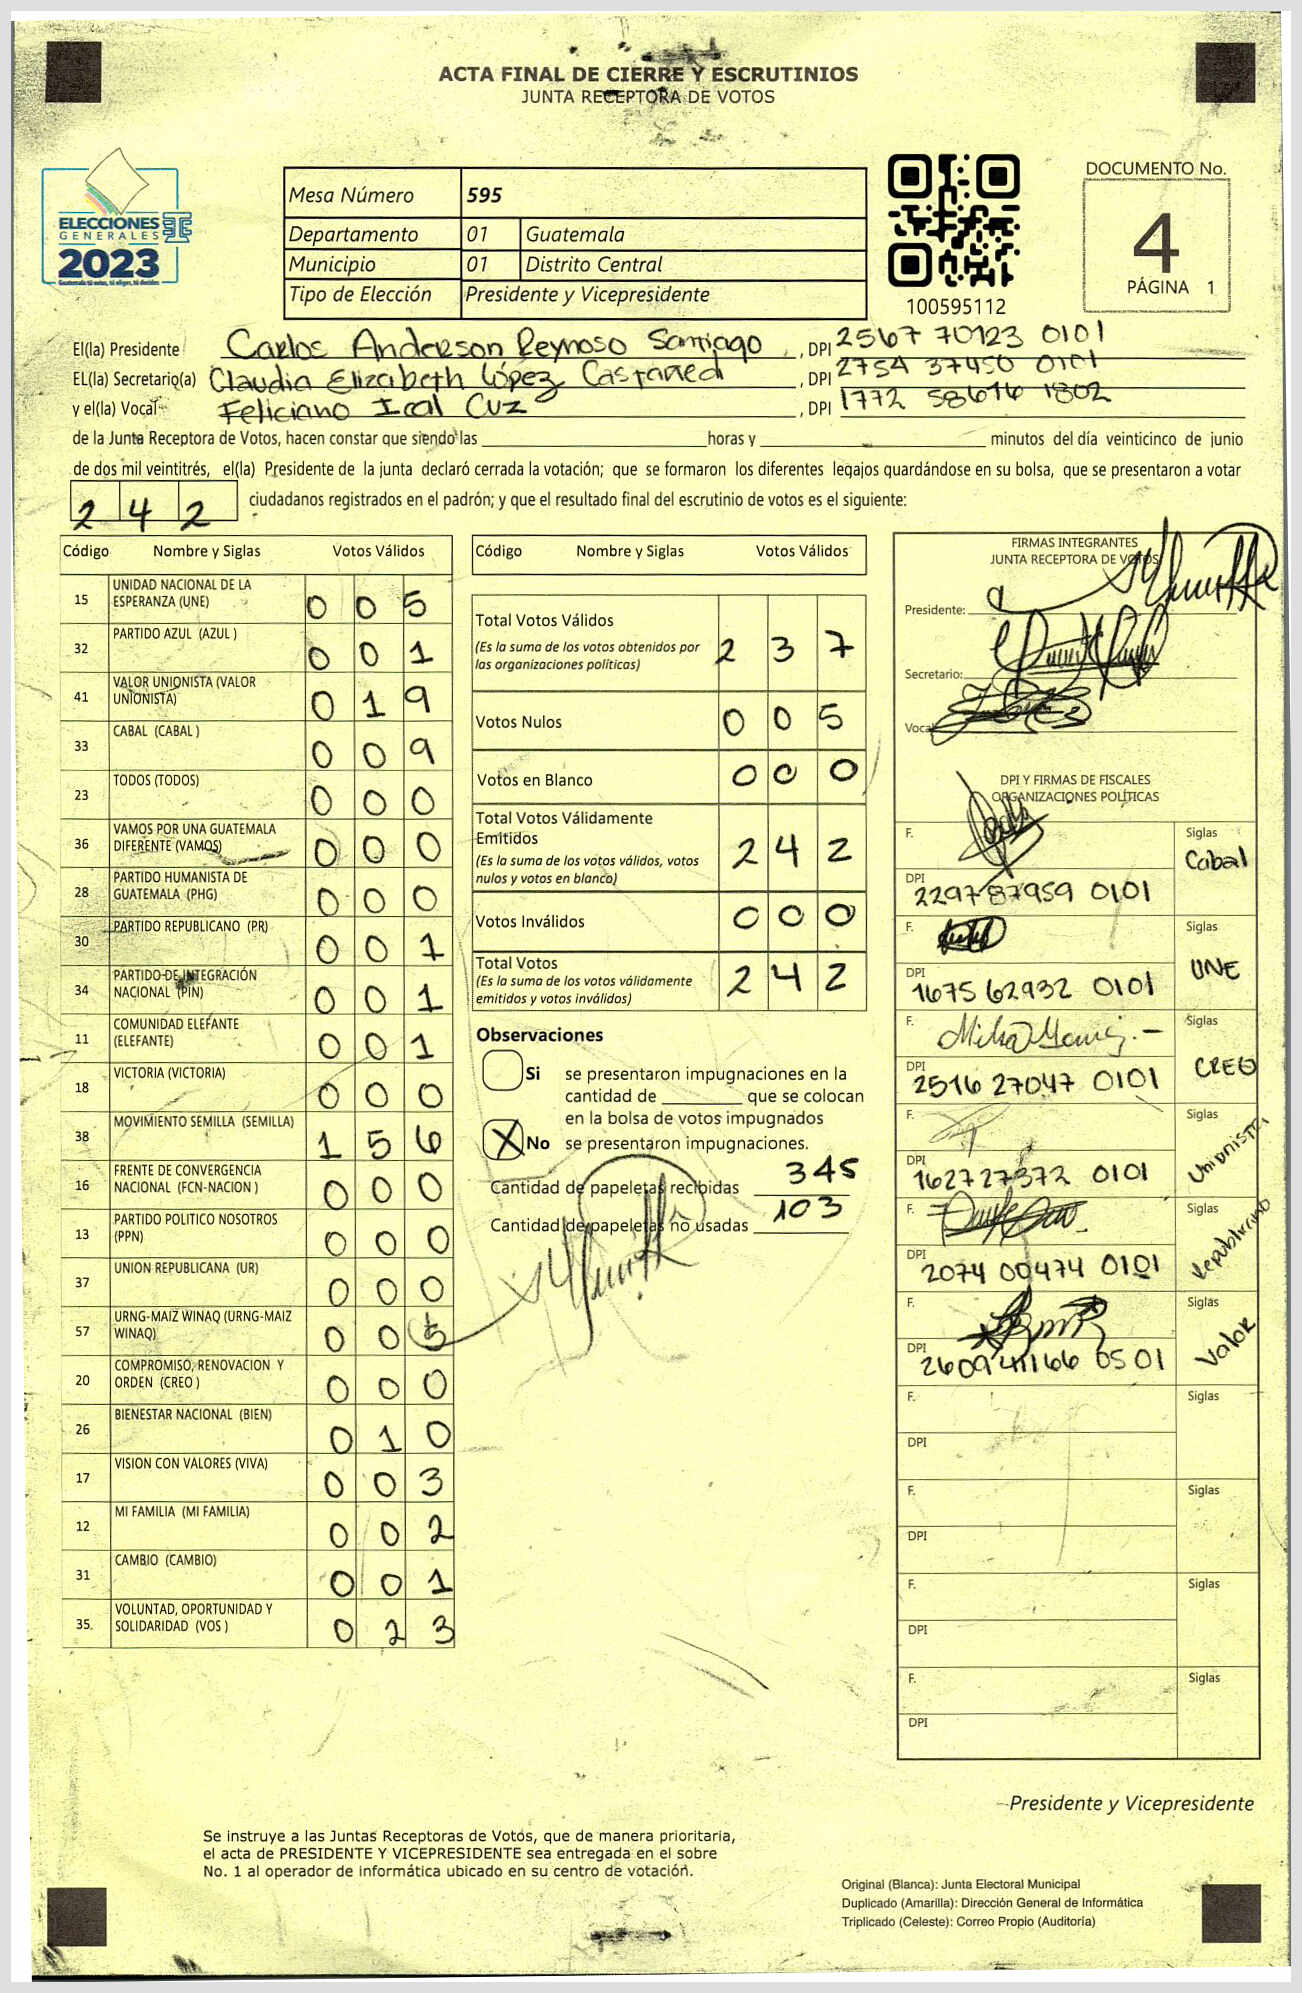 ACTA FINAL DE CIERRE Y ESCRUTINIOS
JUNTA RECEPTORA DE VOTOS
ELECCIONES
GENERALES
2023
Guatemala tú votas, tú eliges, tú decides
Mesa Número 595
Departamento 01 Guatemala
Municipio 01 Distrito Central
Tipo de Elección Presidente y Vicepresidente
100595112
DOCUMENTO No.
4
PÁGINA 1
El(la) Presidente Carlos Anderson Reynoso Santiago , DPI 2567 70123 0101
EL(la) Secretario(a) Claudia Elizabeth López Castañed , DPI 2754 37450 0101
y el(la) Vocal Feliciano Ical Cuz , DPI 1772 58616 1802
de la Junta Receptora de Votos, hacen constar que siendo las horas y minutos del día veinticinco de junio
de dos mil veintitrés, el(la) Presidente de la junta declaró cerrada la votación; que se formaron los diferentes legajos guardándose en su bolsa, que se presentaron a votar
242 ciudadanos registrados en el padrón; y que el resultado final del escrutinio de votos es el siguiente:
Código Nombre y Siglas Votos Válidos
15 UNIDAD NACIONAL DE LA ESPERANZA (UNE) 0 0 5
32 PARTIDO AZUL (AZUL ) 0 0 1
41 VALOR UNIONISTA (VALOR UNIONISTA) 0 1 9
33 CABAL (CABAL ) 0 0 9
23 TODOS (TODOS) 0 0 0
36 VAMOS POR UNA GUATEMALA DIFERENTE (VAMOS) 0 0 0
28 PARTIDO HUMANISTA DE GUATEMALA (PHG) 0 0 0
30 PARTIDO REPUBLICANO (PR) 0 0 1
34 PARTIDO DE INTEGRACIÓN NACIONAL (PIN) 0 0 1
11 COMUNIDAD ELEFANTE (ELEFANTE) 0 0 1
18 VICTORIA (VICTORIA) 0 0 0
38 MOVIMIENTO SEMILLA (SEMILLA) 1 5 6
16 FRENTE DE CONVERGENCIA NACIONAL (FCN-NACION ) 0 0 0
13 PARTIDO POLITICO NOSOTROS (PPN) 0 0 0
37 UNION REPUBLICANA (UR) 0 0 0
57 URNG-MAIZ WINAQ (URNG-MAIZ WINAQ) 0 0 5
20 COMPROMISO, RENOVACION Y ORDEN (CREO ) 0 0 0
26 BIENESTAR NACIONAL (BIEN) 0 1 0
17 VISION CON VALORES (VIVA) 0 0 3
12 MI FAMILIA (MI FAMILIA) 0 0 2
31 CAMBIO (CAMBIO) 0 0 1
35. VOLUNTAD, OPORTUNIDAD Y SOLIDARIDAD (VOS ) 0 2 3
Código Nombre y Siglas Votos Válidos
Total Votos Válidos 2 3 7
(Es la suma de los votos obtenidos por
las organizaciones políticas)
Votos Nulos 0 0 5
Votos en Blanco 0 0 0
Total Votos Válidamente
Emitidos 2 4 2
(Es la suma de los votos válidos, votos
nulos y votos en blanco)
Votos Inválidos 0 0 0
Total Votos 2 4 2
(Es la suma de los votos válidamente
emitidos y votos inválidos)
Observaciones
Si se presentaron impugnaciones en la
cantidad de que se colocan
en la bolsa de votos impugnados
X No se presentaron impugnaciones.
Cantidad de papeletas recibidas 345
Cantidad de papeletas no usadas 103
FIRMAS INTEGRANTES
JUNTA RECEPTORA DE VOTOS
Presidente:
Secretario:
Vocal
DPI Y FIRMAS DE FISCALES
ORGANIZACIONES POLÍTICAS
F. Siglas Cabal
DPI 2297 87959 0101
F. Siglas UNE
DPI 1675 62932 0101
F. Siglas CREO
DPI 2516 27047 0101
F. Siglas Unionista
DPI 162727372 0101
F. Siglas Republicano
DPI 2074 00474 0101
F. Siglas Valor
DPI 2609 41166 0501
F. Siglas
DPI
F. Siglas
DPI
F. Siglas
DPI
F. Siglas
DPI
Presidente y Vicepresidente
Se instruye a las Juntas Receptoras de Votos, que de manera prioritaria,
el acta de PRESIDENTE Y VICEPRESIDENTE sea entregada en el sobre
No. 1 al operador de informática ubicado en su centro de votación.
Original (Blanca): Junta Electoral Municipal
Duplicado (Amarilla): Dirección General de Informática
Triplicado (Celeste): Correo Propio (Auditoría)